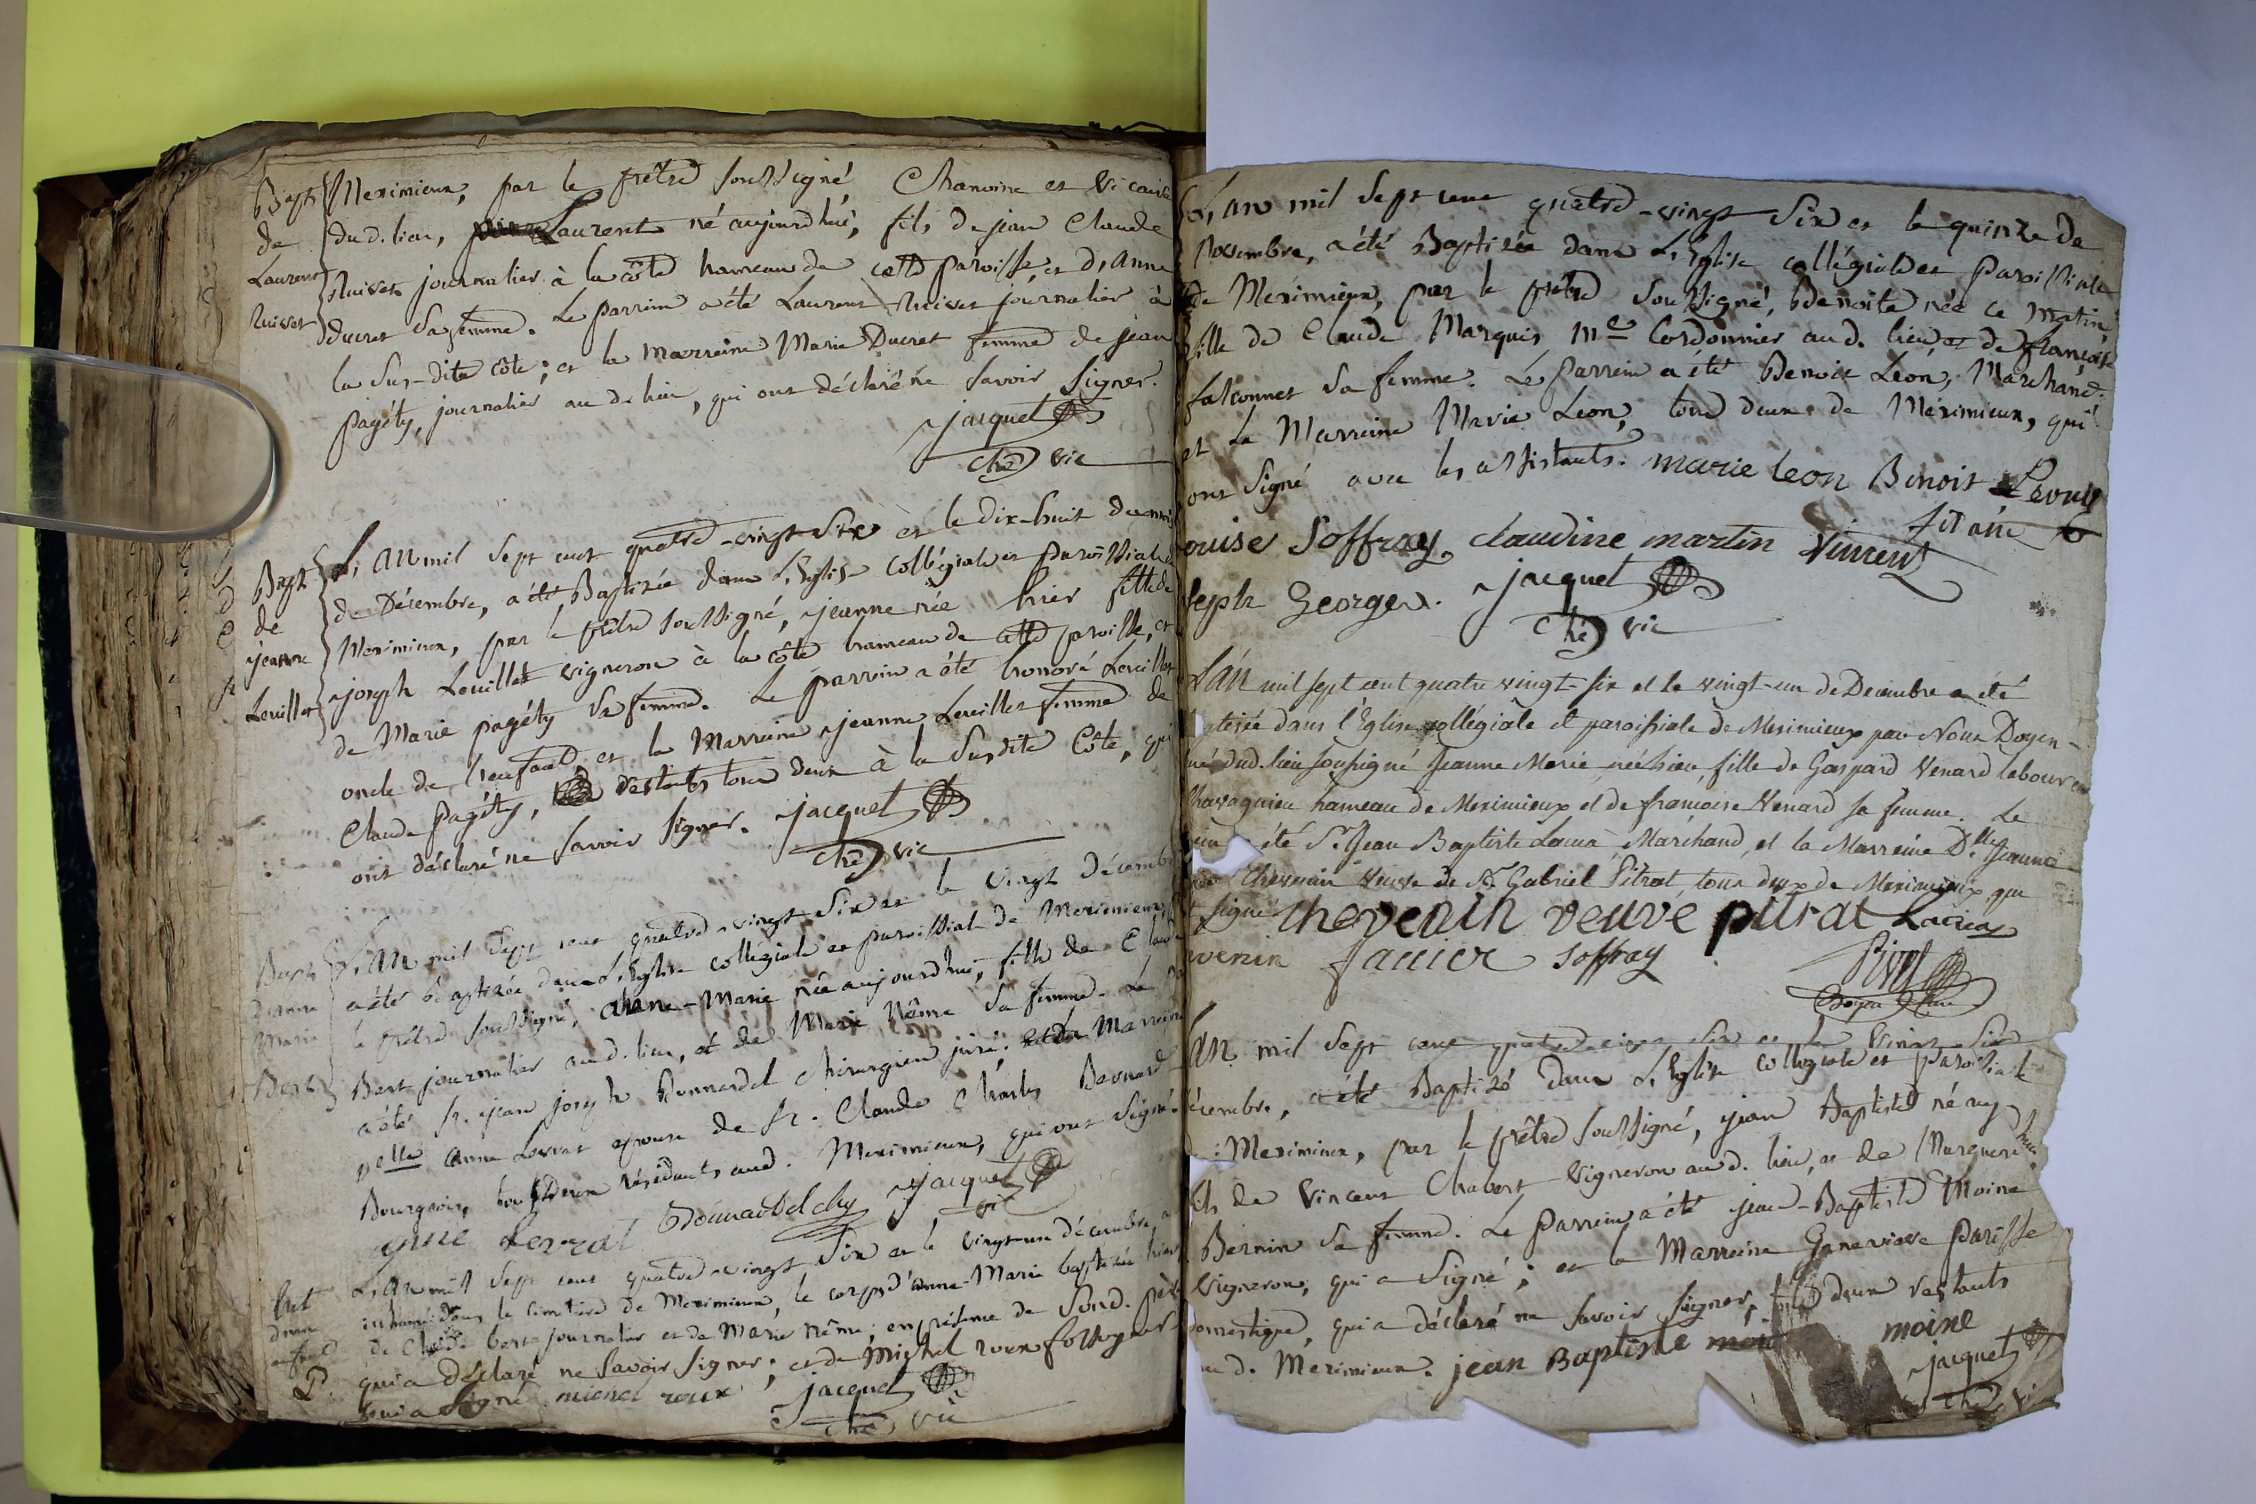 Bapt
de
Laurent
Ruivet
Meximieux, par le prêtre soussigné Chanoine et Vicaire
dud. lieu, Laurent né aujourdhui, fils de jean Claude
Ruivet journalier à la côte hameau de cette paroisse, et d'anne
ducret sa femme. Le parrein a été Laurent Ruivet journalier à
la sus-dite côte; et la marreine Marie Ducret femme de jean
pagéty, journalier au d. lieu, qui ont déclaré ne savoir signer.
jacquet
che vic
Bapt
de
jeanne
Leuillet
L'an mil sept cent quatre-vingt six et le dix-huit du mois
de Décembre, a été Baptisée dans L'Eglise collégiale et paroissiale de
Meximieux, par le prêtre soussigné, jeanne née hier fille de
joseph Leuillet vigneron à la côte hameau de cette paroisse, et
de Marie pagéty sa femme. Le parrein a été honoré Leuillet
oncle de l'enfant, et la Marreine jeanne Leuillet femme de
Claude pagéty, restants tous deux à la susdite Côte, qui
ont déclaré ne savoir signer. jacquet
che vic
Bapt
d'anne
Marie
Bert
L'an mil sept cent quatre-vingt six et le vingt Décembre
a été baptisée dans L'Eglise collégiale et paroissiale de Meximieux,
le prêtre soussigné, anne-Marie née aujourdhui, fille de Claude
Bert journalier au d. lieu, et de Marie Nême sa femme. Le
a été sr. jean joseph Bonnardel chirurgien juré; et la Marreine
Delle anne Levrat epouse de sr. Claude Charles Bernard
Bourgeois, tous deux résidants aud. Meximieux, qui ont signé.
anne Levrat Bonnardel chg jacquet
vic
Ent
d'un
enfant
L'an mil sept cent quatre-vingt six et le vingt-un décembre, a
inhumé dans le cimetière de Meximieux, le corps d'anne-Marie baptisée hier
de Claude bert journalier et de Marie Nême; en présence de son d. père
qui a déclaré ne savoir signer; et de Michel roux fossoyeur
qui a signé michel roux jacquet
che vic
L'an mil sept cent quatre-vingt six et le quinze de
Novembre, a été Baptisée dans L'Eglise collégiale et paroissiale
de Meximieux, par le prêtre soussigné, Benoite née ce matin
fille de Claude Marquis Me Cordonnier au d. lieu, et de françoise
falconnet sa femme. Le parrein a été Benoit Léon, Marchand
et La Marreine Marie Léon, tous deux de Méximieux, qui
ont signé avec les assistants. marie leon Benoit Léon
ouise Soffray claudine martin Vincent
seph George. jacquet
che vic
L'an mil sept cent quatre vingt-six et le vingt-un de Décembre a été
ptisée dans l'Eglise collégiale et paroissiale de Meximieux par Nous Doyen-
dud. lieu soussigné Jeanne Marie, née hier, fille de Gaspard Venard laboureur
Chavagnieu hameau de Meximieux et de francoise Venard sa femme. Le
été Sr. Jean Baptiste Lacua Marchand, et la Marreine Dlle Jeanne
Chevenin Veuve de Sr. Gabriel Pitrat, tous deux de Meximieux qui
signé chevenin veuve pitrat Lacua
venin janier soffray
Doyen Curé
L'an mil sept cent quatre-vingt six et le vingt six
écembre, a été Baptisé dans L'Eglise collégiale et paroissiale
de Meximieux, par le prêtre soussigné, jean Baptiste né auj
hui
fils de Vincent Chabert Vigneron au d. lieu, et de Marguerite
Bernin sa femme. Le parrein a été jean-Baptiste Moine
Vigneron; qui a signé; et la Marreine Genevieve parisse
domestique, qui a déclaré ne savoir signer, tous deux restants
au d. Méximieux. jean Baptiste moine
jacquet
che vic